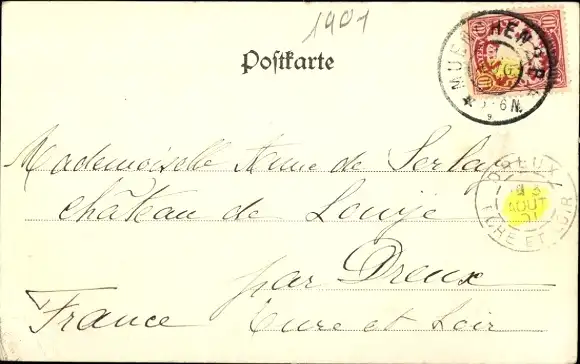 1901
Postkarte
MUENCHEN B.P.
5-6 N.
10 10
Mademoiselle Anne de
château de
par Dreux
France Eure et Loir
DREUX
3
AOUT
01
EURE ET LOIR